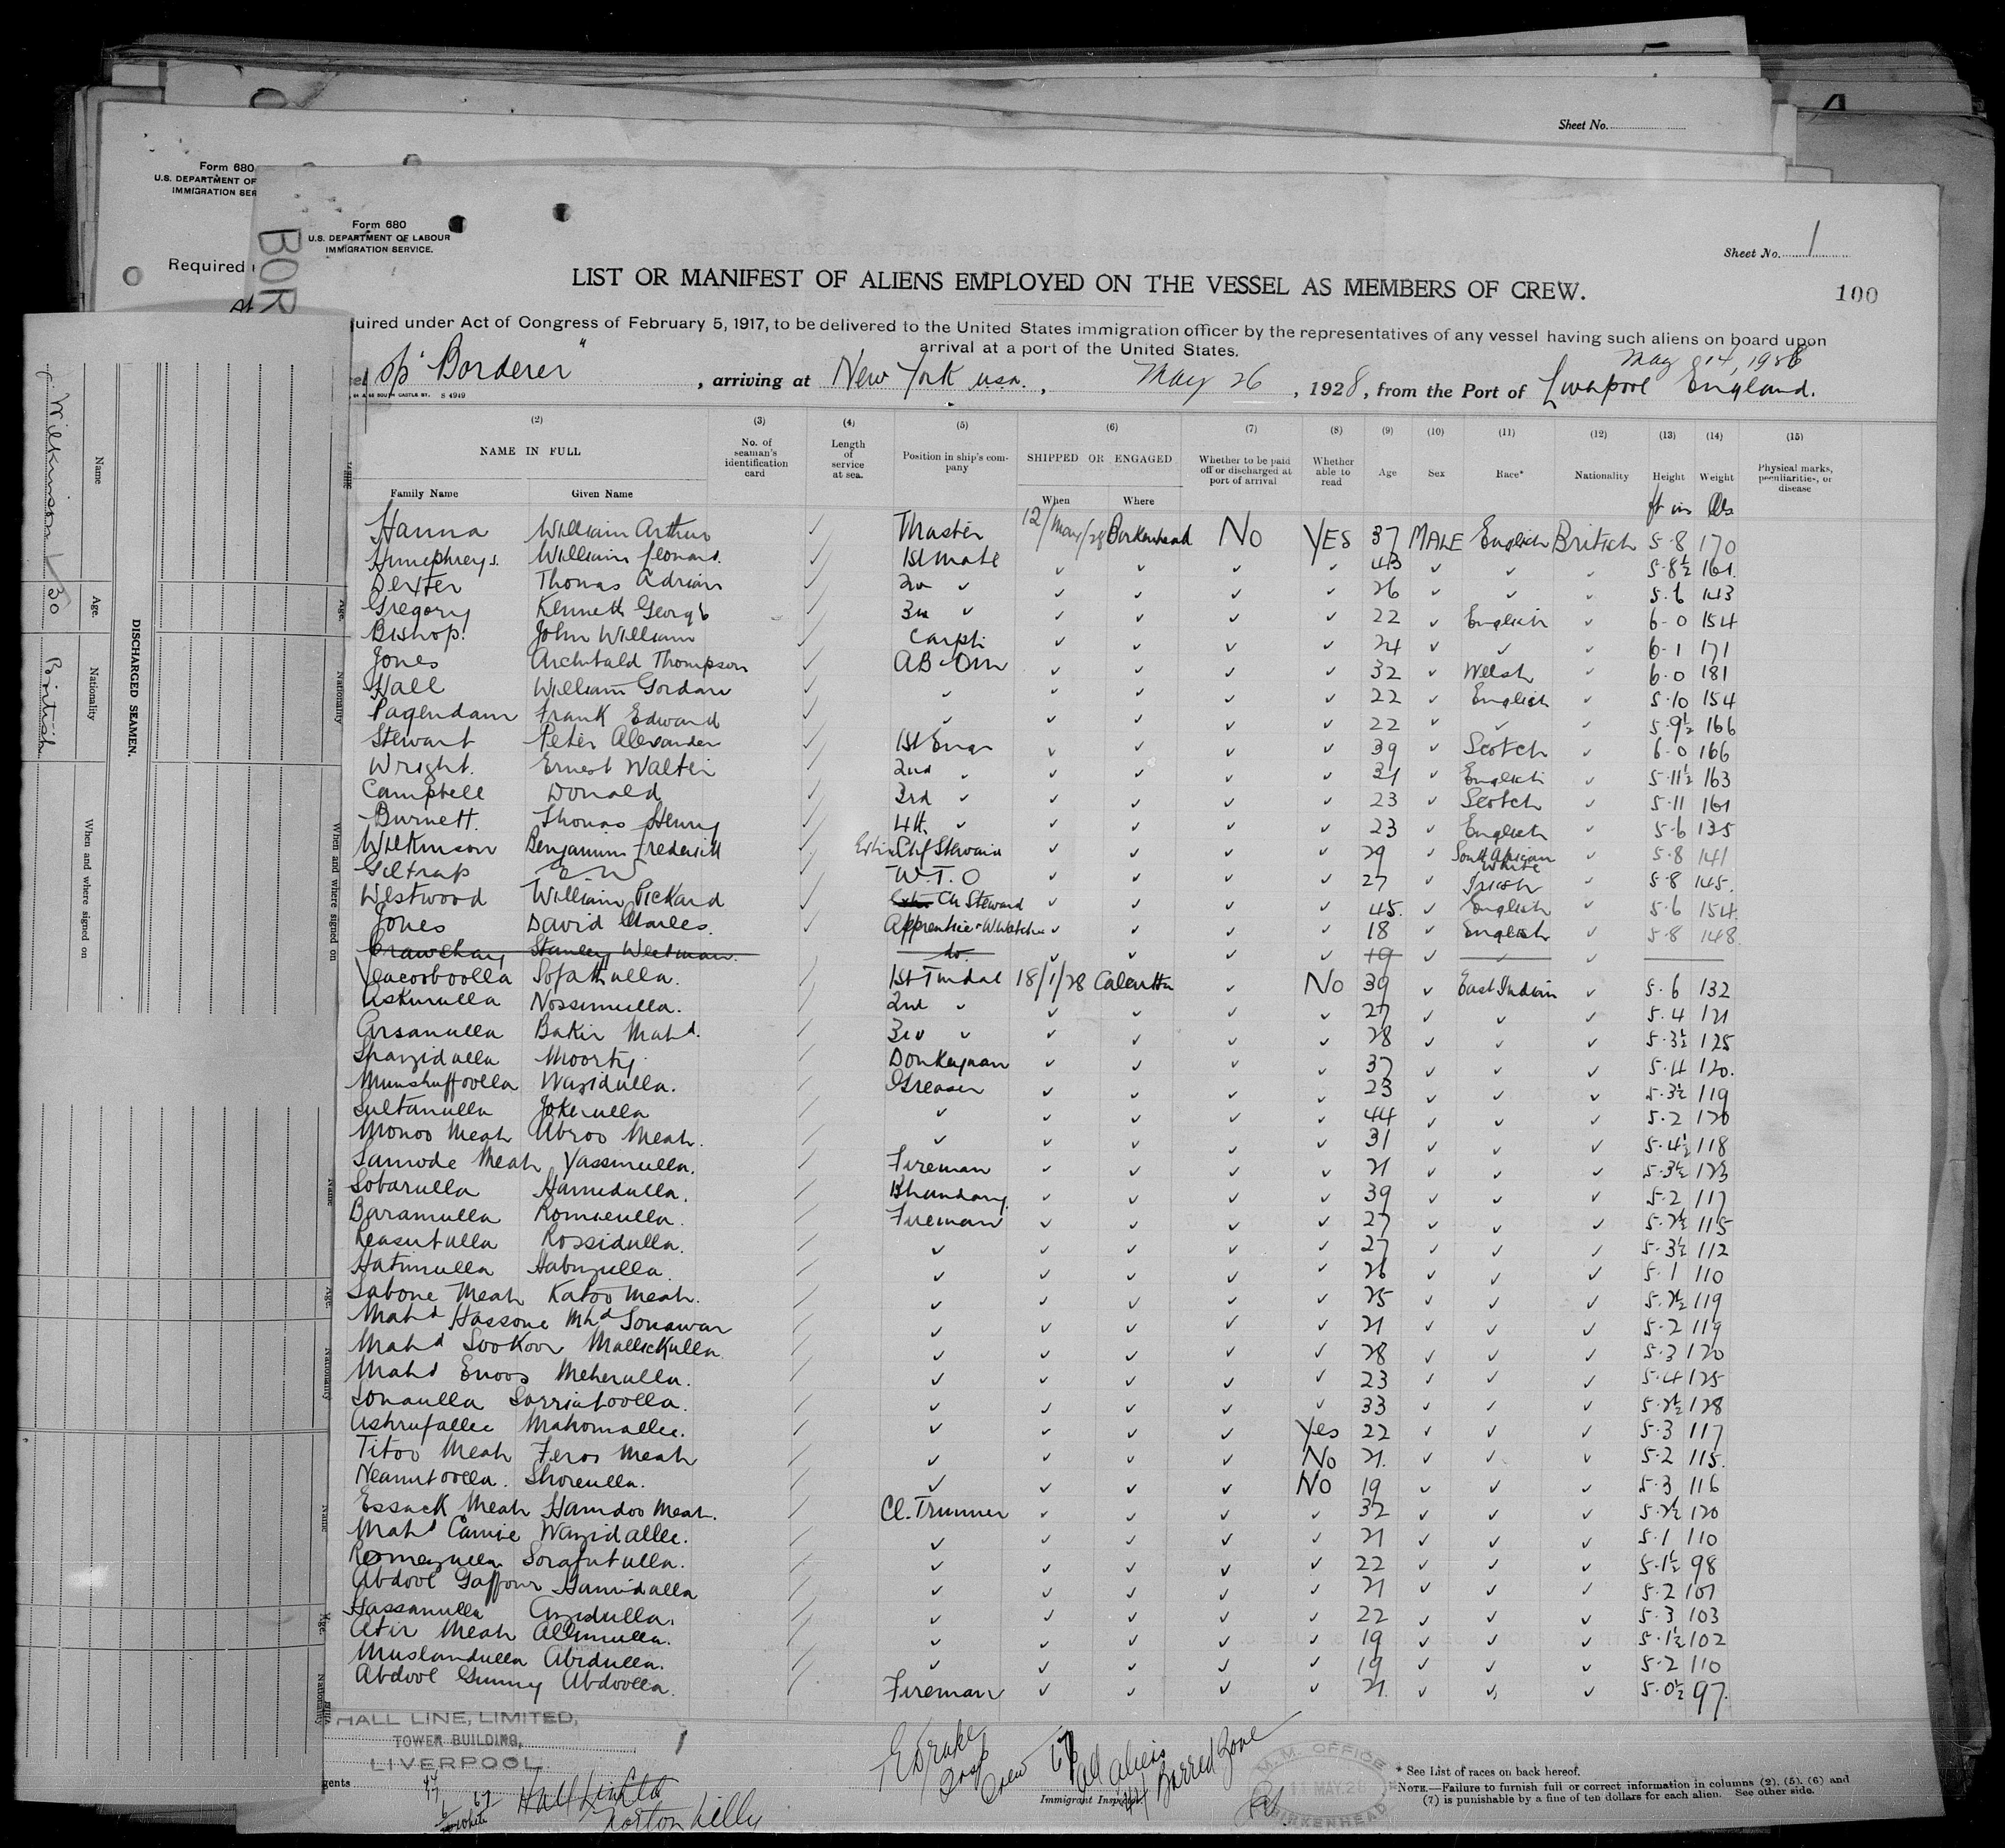 Sheet No.
Form 680
U.S. DEPARTMENT OF
IMMIGRATION SER
Required
At
BOR
Form 680
U.S. DEPARTMENT OF LABOUR
IMMIGRATION SERVICE.
Sheet No. 1
LIST OR MANIFEST OF ALIENS EMPLOYED ON THE VESSEL AS MEMBERS OF CREW.
100
uired under Act of Congress of February 5, 1917, to be delivered to the United States immigration officer by the representatives of any vessel having such aliens on board upon
arrival at a port of the United States.
May 14, 1928
"Borderer", arriving at New York usa., May 26, 1928, from the Port of Liverpool England.
(2) (3) (4) (5) (6) (7) (8) (9) (10) (11) (12) (13) (14) (15)
NAME IN FULL No. of seaman's identification card Length of service at sea. Position in ship's company SHIPPED OR ENGAGED Whether to be paid off or discharged at port of arrival Whether able to read Age Sex Race* Nationality Height Weight Physical marks, peculiarities, or disease
Family Name Given Name When Where
ft in lbs
Hanna William Arthur Master 12/May/28 Birkenhead No YES 37 MALE English British 5-8 170
Humphreys. William Leonard. 1st Mate 43 5-8½ 161.
Dexter Thomas Adrian 2nd 26 5-6 143
Gregory Kenneth George 3rd 22 English 6-0 154
Bishop. John William Carptr 24 6-1 171
Jones Archibald Thompson AB 32 Welsh 6-0 181
Hall William Gordon 22 English 5-10 154
Pagendam Frank Edward 22 5-9½ 166
Stewart Peter Alexander 1st Engr 39 Scotch 6-0 166
Wright. Ernest Walter 2nd 31 English 5-11½ 163
Campbell Donald 3rd 23 Scotch 5-11 161
Burnett. Thomas Henry 4th. 23 English 5-6 135
Wilkinson Benjamin Frederick Stewart 29 South African White 5-8 141
Giltrap E. W W.T.O 27 Irish 5-8 145.
Westwood William Pickard Ch Steward 45. English 5-6 154.
Jones David Charles. Apprentice 18 English 5-8 148.
Stanley do. 19
Yeacooboolla Sofatulla. 1st Tindal 18/1/28 Calcutta No 39 East Indian 5-6 132
Askurulla Nossimulla. 2nd 27 5-4 121
Arsanulla Bakir Mahd. 3rd 28 5-3½ 125
Shazidulla Moorty. Donkeyman 37 5-4 120.
Munshuffoolla Wazidulla. Greaser 23 5-3½ 119
Sultanulla Jokirulla 44 5-2 120
Monoo Meah Abroo Meah. 31 5-4½ 118
Samode Meah Yassinulla. Fireman 21 5-3½ 123
Sobarulla Hamidulla. Bhandary 39 5-2 117
Baramulla Fireman 27 5-2½ 115
Reasutulla Rossidulla. 27 5-3½ 112
Hatimulla Habizulla 26 5-1 110
Sabone Meah Katoo Meah. 25 5-2½ 119
Mahd Hassone Mhd Sonawar 21 5-2 119
Mahd Sookoor Mallickulla 28 5-3 120
Mahd Enoos Meherulla. 23 5-4 125
Sonaulla Sarriatoolla. 33 5-2½ 128
Ashrufallee Mahomallee. Yes 22 5-3 117
Titoo Meah Feros Meah No 21. 5-2 115.
Neamutoolla. Shoreulla. No 19 5-3 116
Essack Meah Hamdoo Meah. Cl. Trimmer 32 5-2½ 120
Mahd Wazidallee. 21 5-1 110
Romezulla Sorafutulla. 22 5-1½ 98
Abdool Gaffour Hamidulla 21 5-2 101
Hassanulla Azidulla. 22 5-3 103
Atir Meah Alimulla. 19 5-1½ 102
Muslandulla Abidulla. 19 5-2 110
Abdool Gunny Abdoolla. Fireman 21. 5-0½ 97.
HALL LINE, LIMITED,
TOWER BUILDING,
LIVERPOOL.
gents
Hall Line Ltd
Norton Lilly
Crew 67
all aliens
44 Barred Zone
Immigrant Inspector.
M.M. OFFICE
MAY
BIRKENHEAD
* See List of races on back hereof.
NOTE.—Failure to furnish full or correct information in columns (2), (5), (6) and
(7) is punishable by a fine of ten dollars for each alien. See other side.
DISCHARGED SEAMEN.
Name Age. Nationality When and where signed on
Wilkinson 30 British
Name Age. Nationality When and where signed on
Name Age. Nationality
Name Age. Nationality